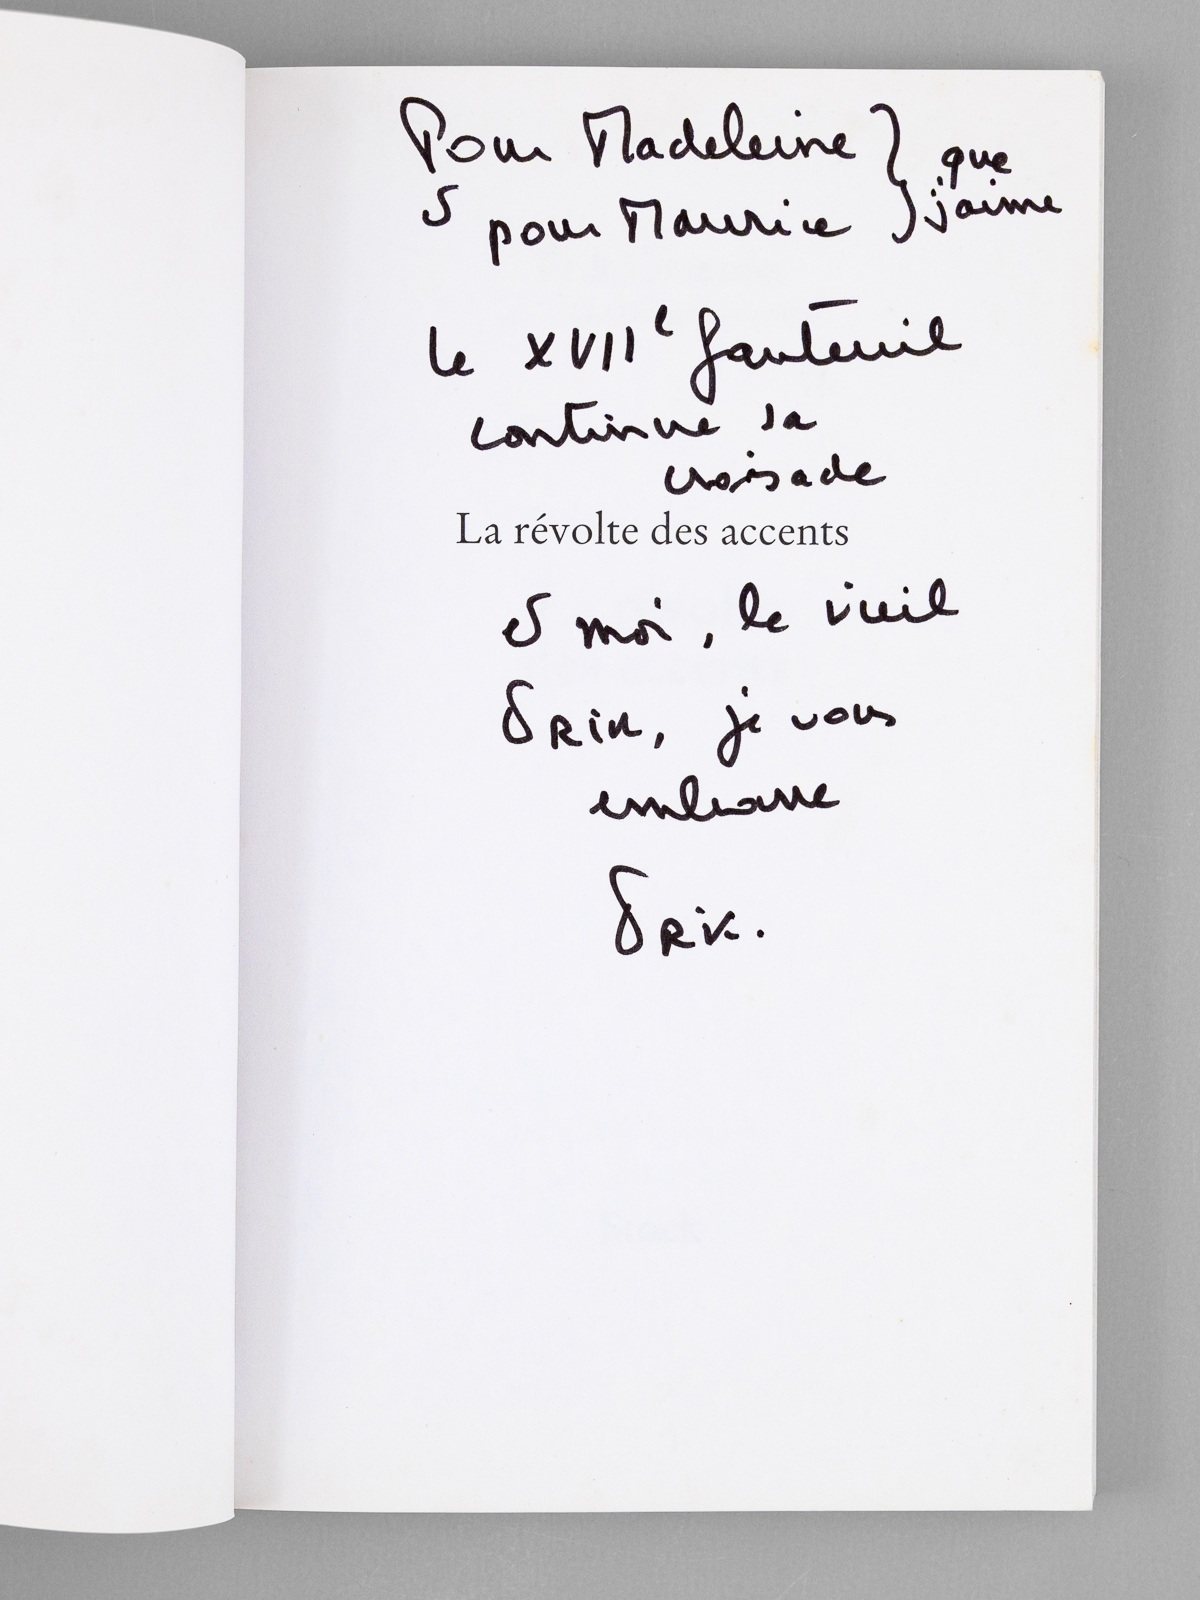 Pour Madeleine } que
& pour Maurice } j'aime
le XVIIe fauteuil
continue sa
croisade
La révolte des accents
& moi, le vieil
Erik, je vous
embrasse
Erik.